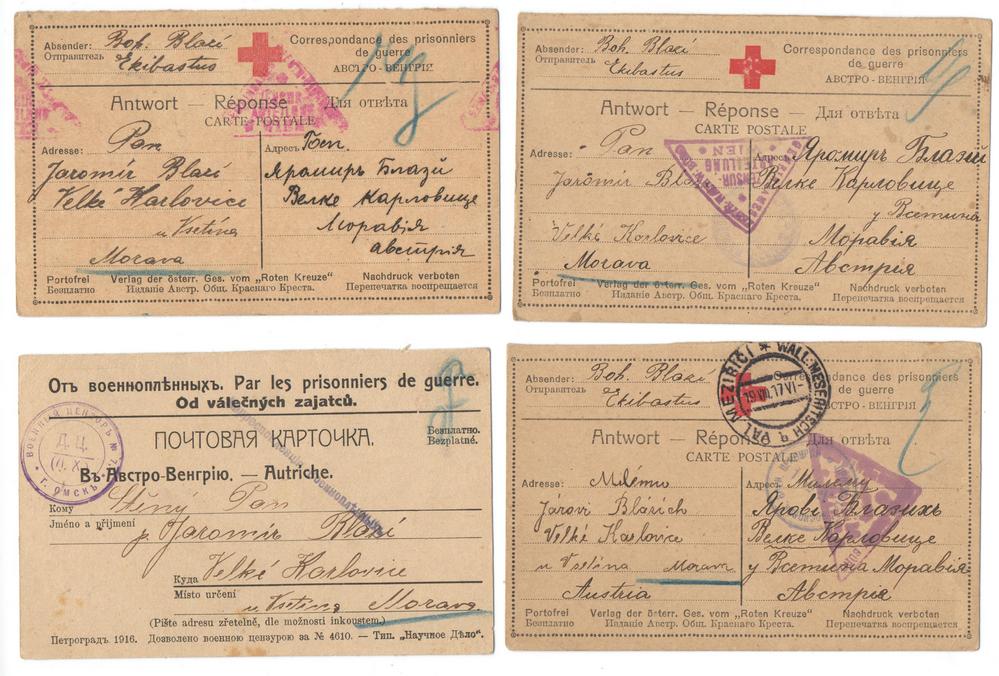 Absender: Boh. Blací
Отправитель Ekibastus
Correspondance des prisonniers
de guerre
АВСТРО - ВЕНГРІЯ
Antwort — Réponse Для отвѣта
CARTE POSTALE
Adresse: Pan
Jaromír Blací
Velké Karlovice
u Vsetína
Morava
Адресъ
Яромиръ Блазй
Велке Карловице
Моравія
австрія
Portofrei Verlag der österr. Ges. vom „Roten Kreuze" Nachdruck verboten
Безплатно Изданіе Австр. Общ. Краснаго Креста. Перепечатка воспрещается
Absender: Boh. Blací
Отправитель Ekibastus
Correspondance des prisonniers
de guerre
АВСТРО - ВЕНГРІЯ
Antwort — Réponse Для отвѣта
CARTE POSTALE
ZENSUR-
WIEN
Adresse: Pan
Jaromír
Velké Karlovice
Morava
Адресъ Яромиръ Блазій
Велке Карловице
у Всетина
Моравія
Австрія
Portofrei Verlag der österr. Ges. vom „Roten Kreuze" Nachdruck verboten
Безплатно Изданіе Австр. Общ. Краснаго Креста. Перепечатка воспрещается
Отъ военноплѣнныхъ. Par les prisonniers de guerre.
Od válečných zajatců.
ВОЕННЫЙ ЦЕНЗОРЪ №
Д.Ц.
г. ОМСКЪ
Безплатно.
Bezplatné.
ПОЧТОВАЯ КАРТОЧКА.
Въ Австро-Венгрію. — Autriche.
Кому Ctěný Pan
Jméno a příjmení p. Jaromír Blací
Куда Velké Karlovice
Místo určení u Vsetína Morava
(Pište adresu zřetelně, dle možnosti inkoustem.)
Петроградъ 1916. Дозволено военною цензурою за № 4610. — Тип. „Научное Дѣло".
Absender: Boh. Blací
Отправитель Ekibastus
Correspondance des prisonniers
de guerre
АВСТРО - ВЕНГРІЯ
WALL. MESERITSCH VAL. MEZIŘÍČÍ
Antwort — Réponse Для отвѣта
CARTE POSTALE
Adresse: Milému
Járovi Blázich
Velké Karlovice
u Vsetína Morava
Austria
Адресъ Милему
Ярови Блазихъ
Велке Карловице
у Всетина Моравія
Австрія
Portofrei Verlag der österr. Ges. vom „Roten Kreuze" Nachdruck verboten
Безплатно Изданіе Австр. Общ. Краснаго Креста. Перепечатка воспрещается